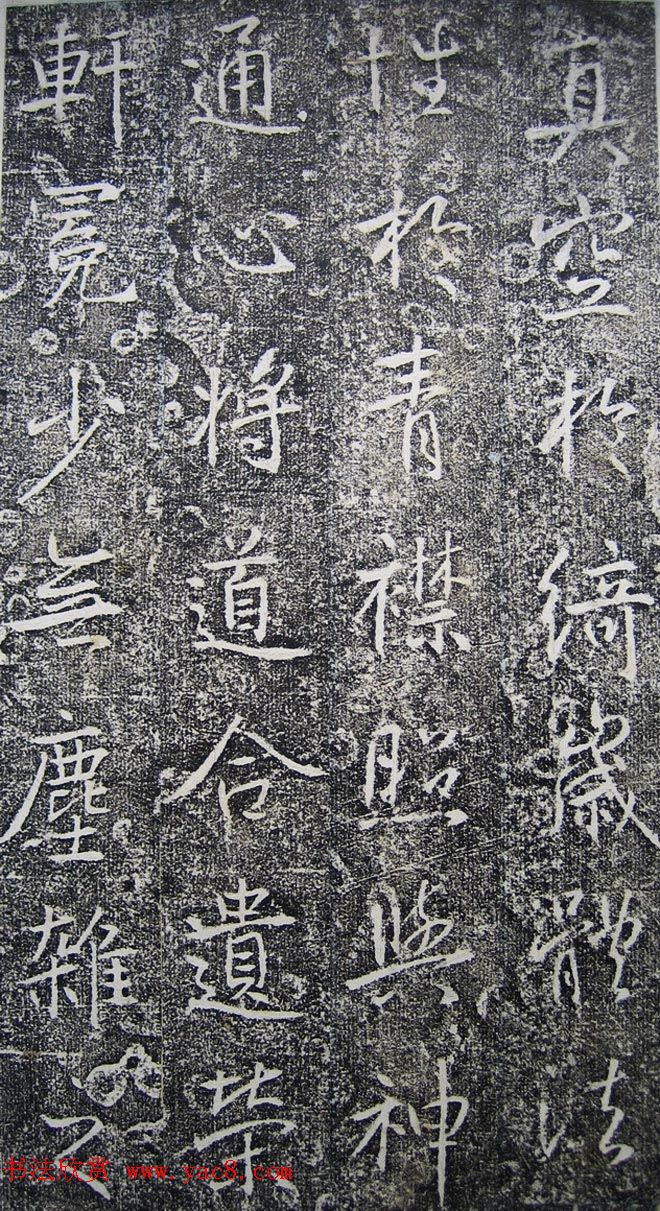 真空於綺歲體法
性於青襟照與神
通心將道合遺榮
軒冕少無塵雜之
书法欣赏 www.yac8.com